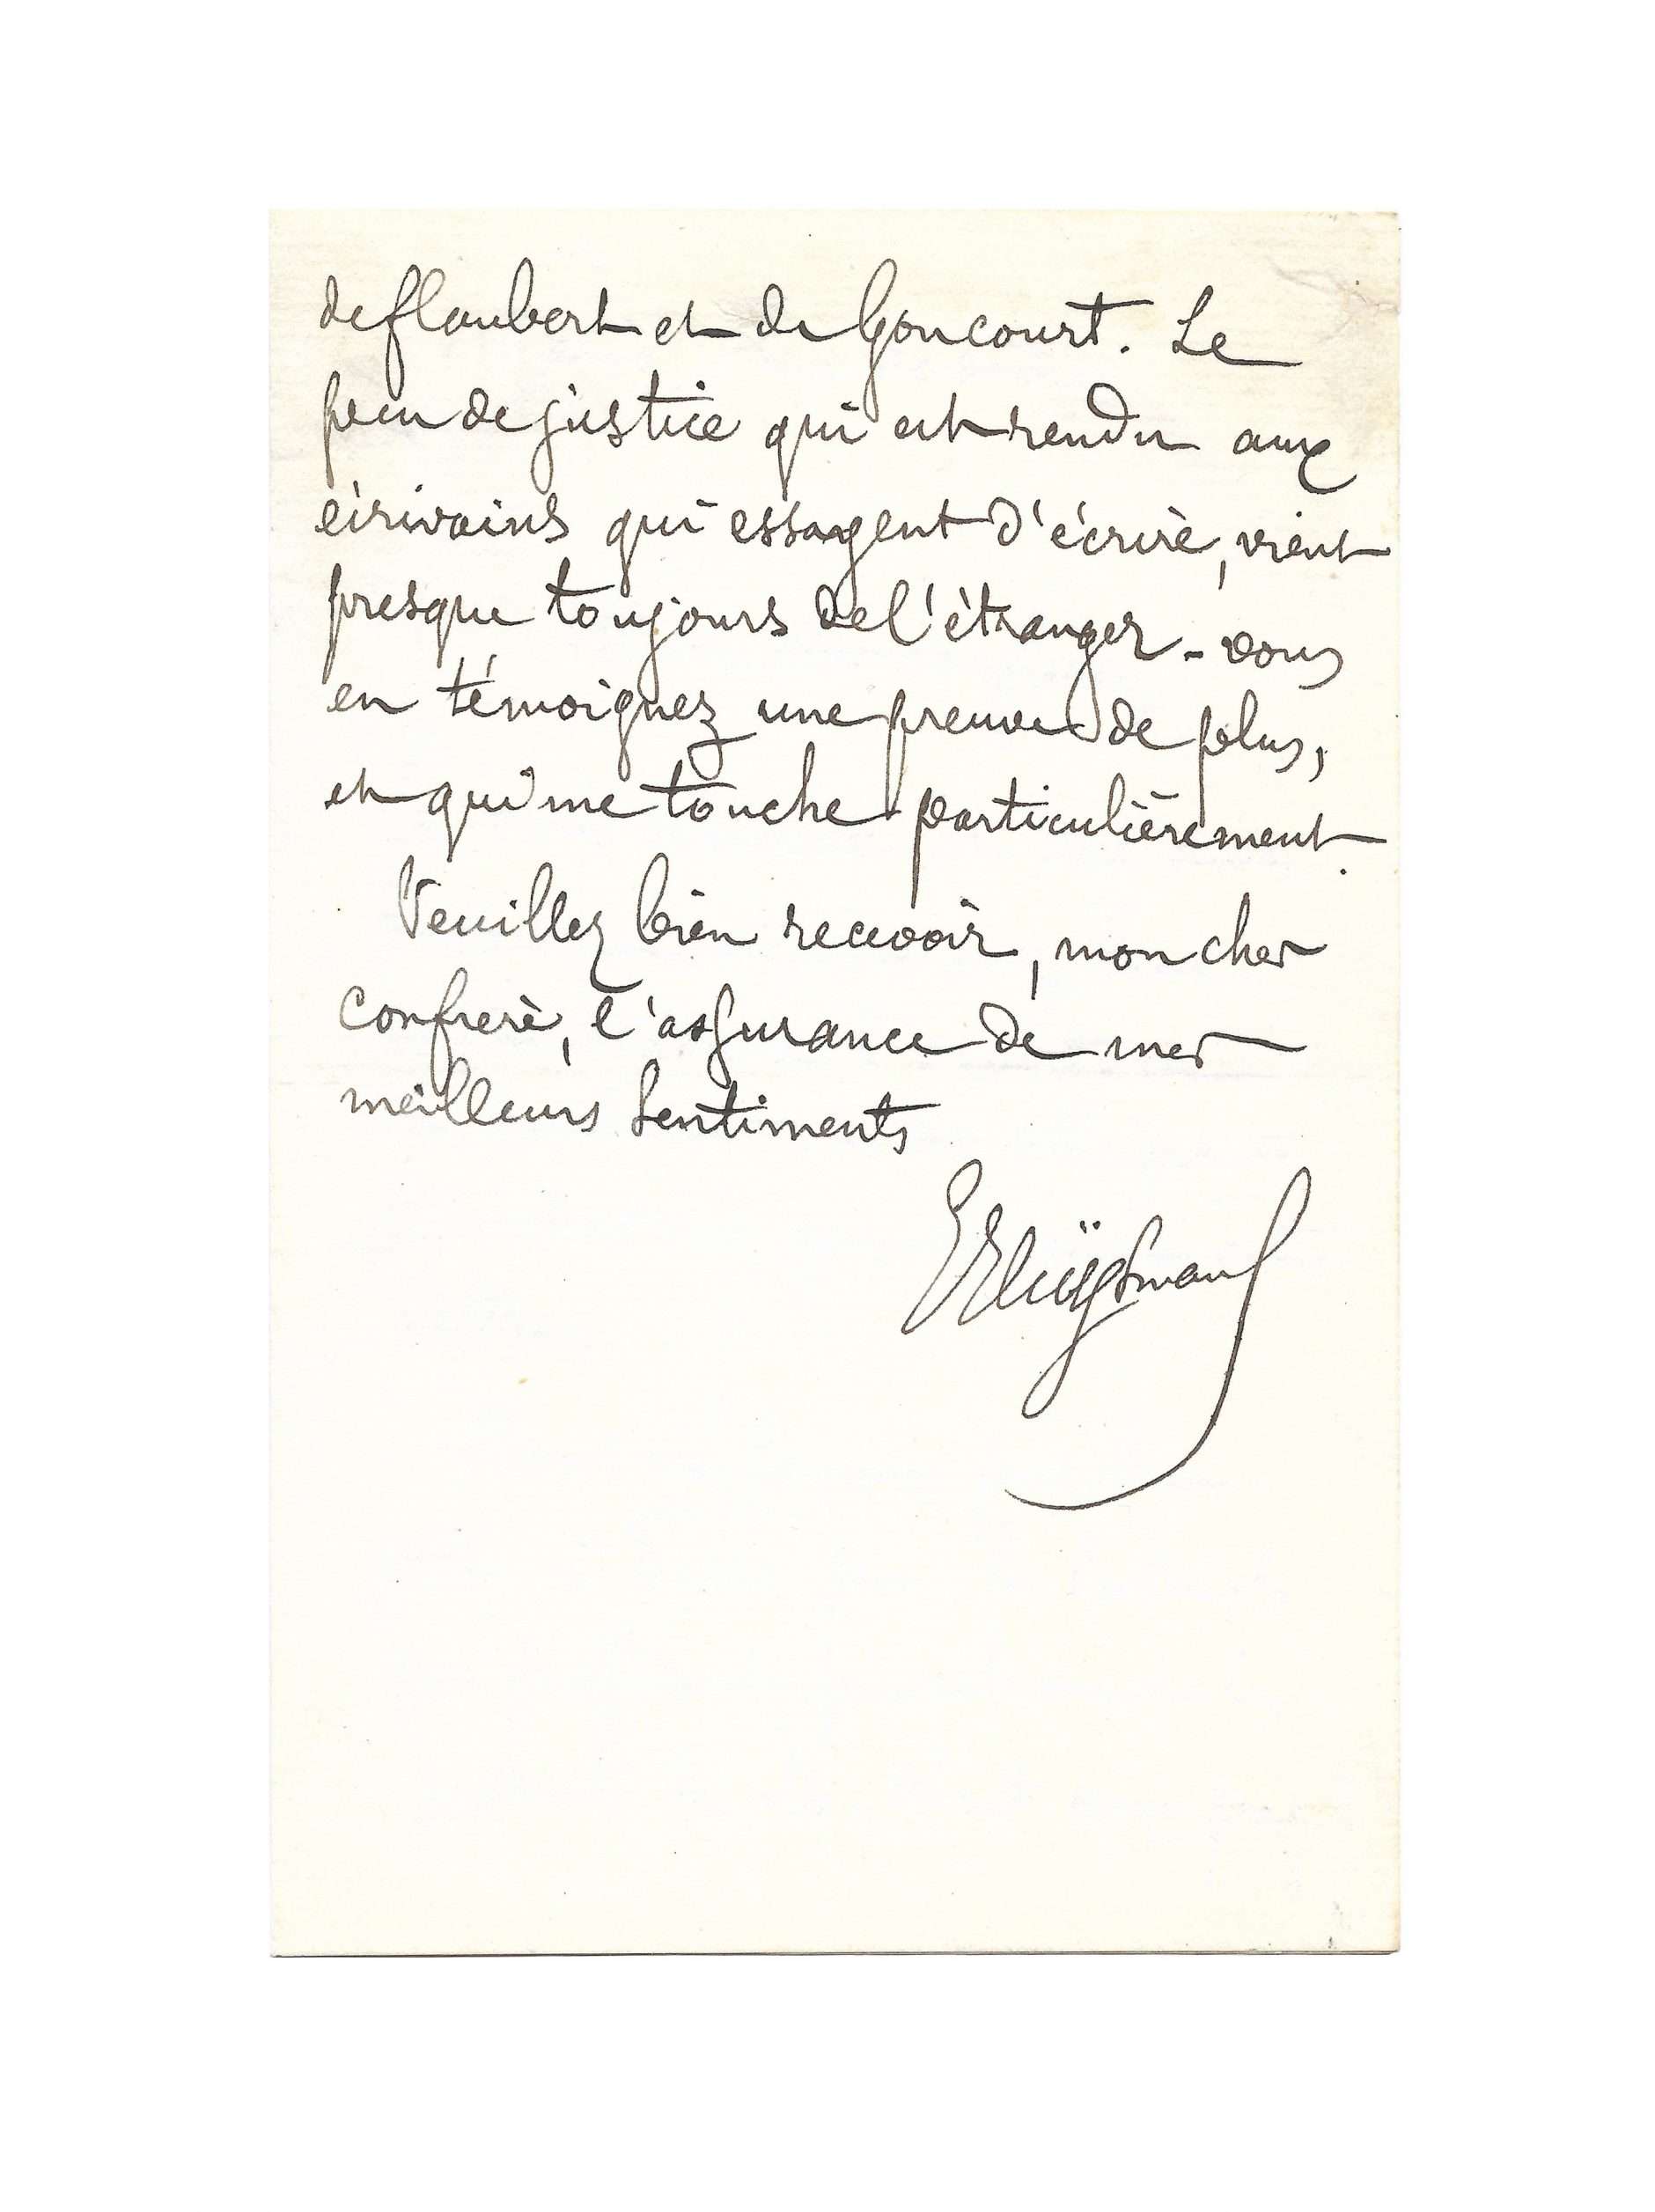 de flaubert et de Goncourt. Le
peu de justice qui est rendu aux
écrivains qui essayent d'écrire, vient
presque toujours de l'étranger - vous
en témoignez une preuve de plus,
et qui me touche particulièrement.
Veuillez bien recevoir, mon cher
confrère, l'assurance de mes
meilleurs sentiments
Huÿsmans